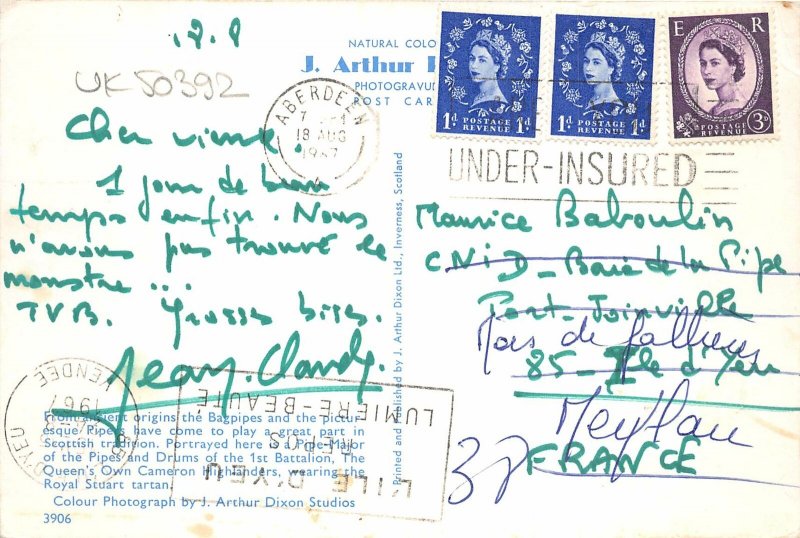 18.8
UK50392
NATURAL COLO
J. Arthur
PHOTOGRAVU
POST CAR
ABERDEEN
18 AUG
1967
1d POSTAGE REVENUE 1d
1d POSTAGE REVENUE 1d
E R
POSTAGE REVENUE 3d
UNDER-INSURED
Cher vieux
1 jour de beau
temps enfin. Nous
n'avons pas trouvé le
monstre ...
TVB. Grosses bises.
Jean-Claude.
Maurice Baboulin
CNID - Baie de la Pipe
Port-Joinville
85 - Ile d'Yeu
FRANCE
Mas de
Meylan
38
VENDEE
1967
D'YEU
L'ILE D'YEU
REPOS
LUMIERE-BEAUTÉ
From ancient origins the Bagpipes and the pictur-
esque Pipers have come to play a great part in
Scottish tradition. Portrayed here is Pipe Major
of the Pipes and Drums of the 1st Battalion, The
Queen's Own Cameron Highlanders, wearing the
Royal Stuart tartan.
Colour Photograph by J. Arthur Dixon Studios
3906
Printed and Published by J. Arthur Dixon Ltd., Inverness, Scotland